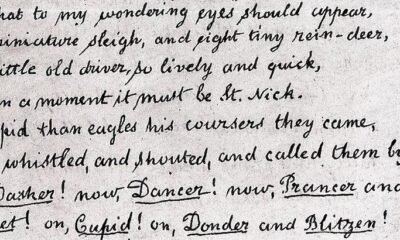 hat to my wondering eyes should appear,
miniature sleigh, and eight tiny rein-deer,
ittle old driver, so lively and quick,
n a moment it must be St. Nick.
pid than eagles his coursers they came,
whistled, and shouted, and called them by
Dasher! now, Dancer! now, Prancer and
et! on, Cupid! on, Donder and Blitzen!